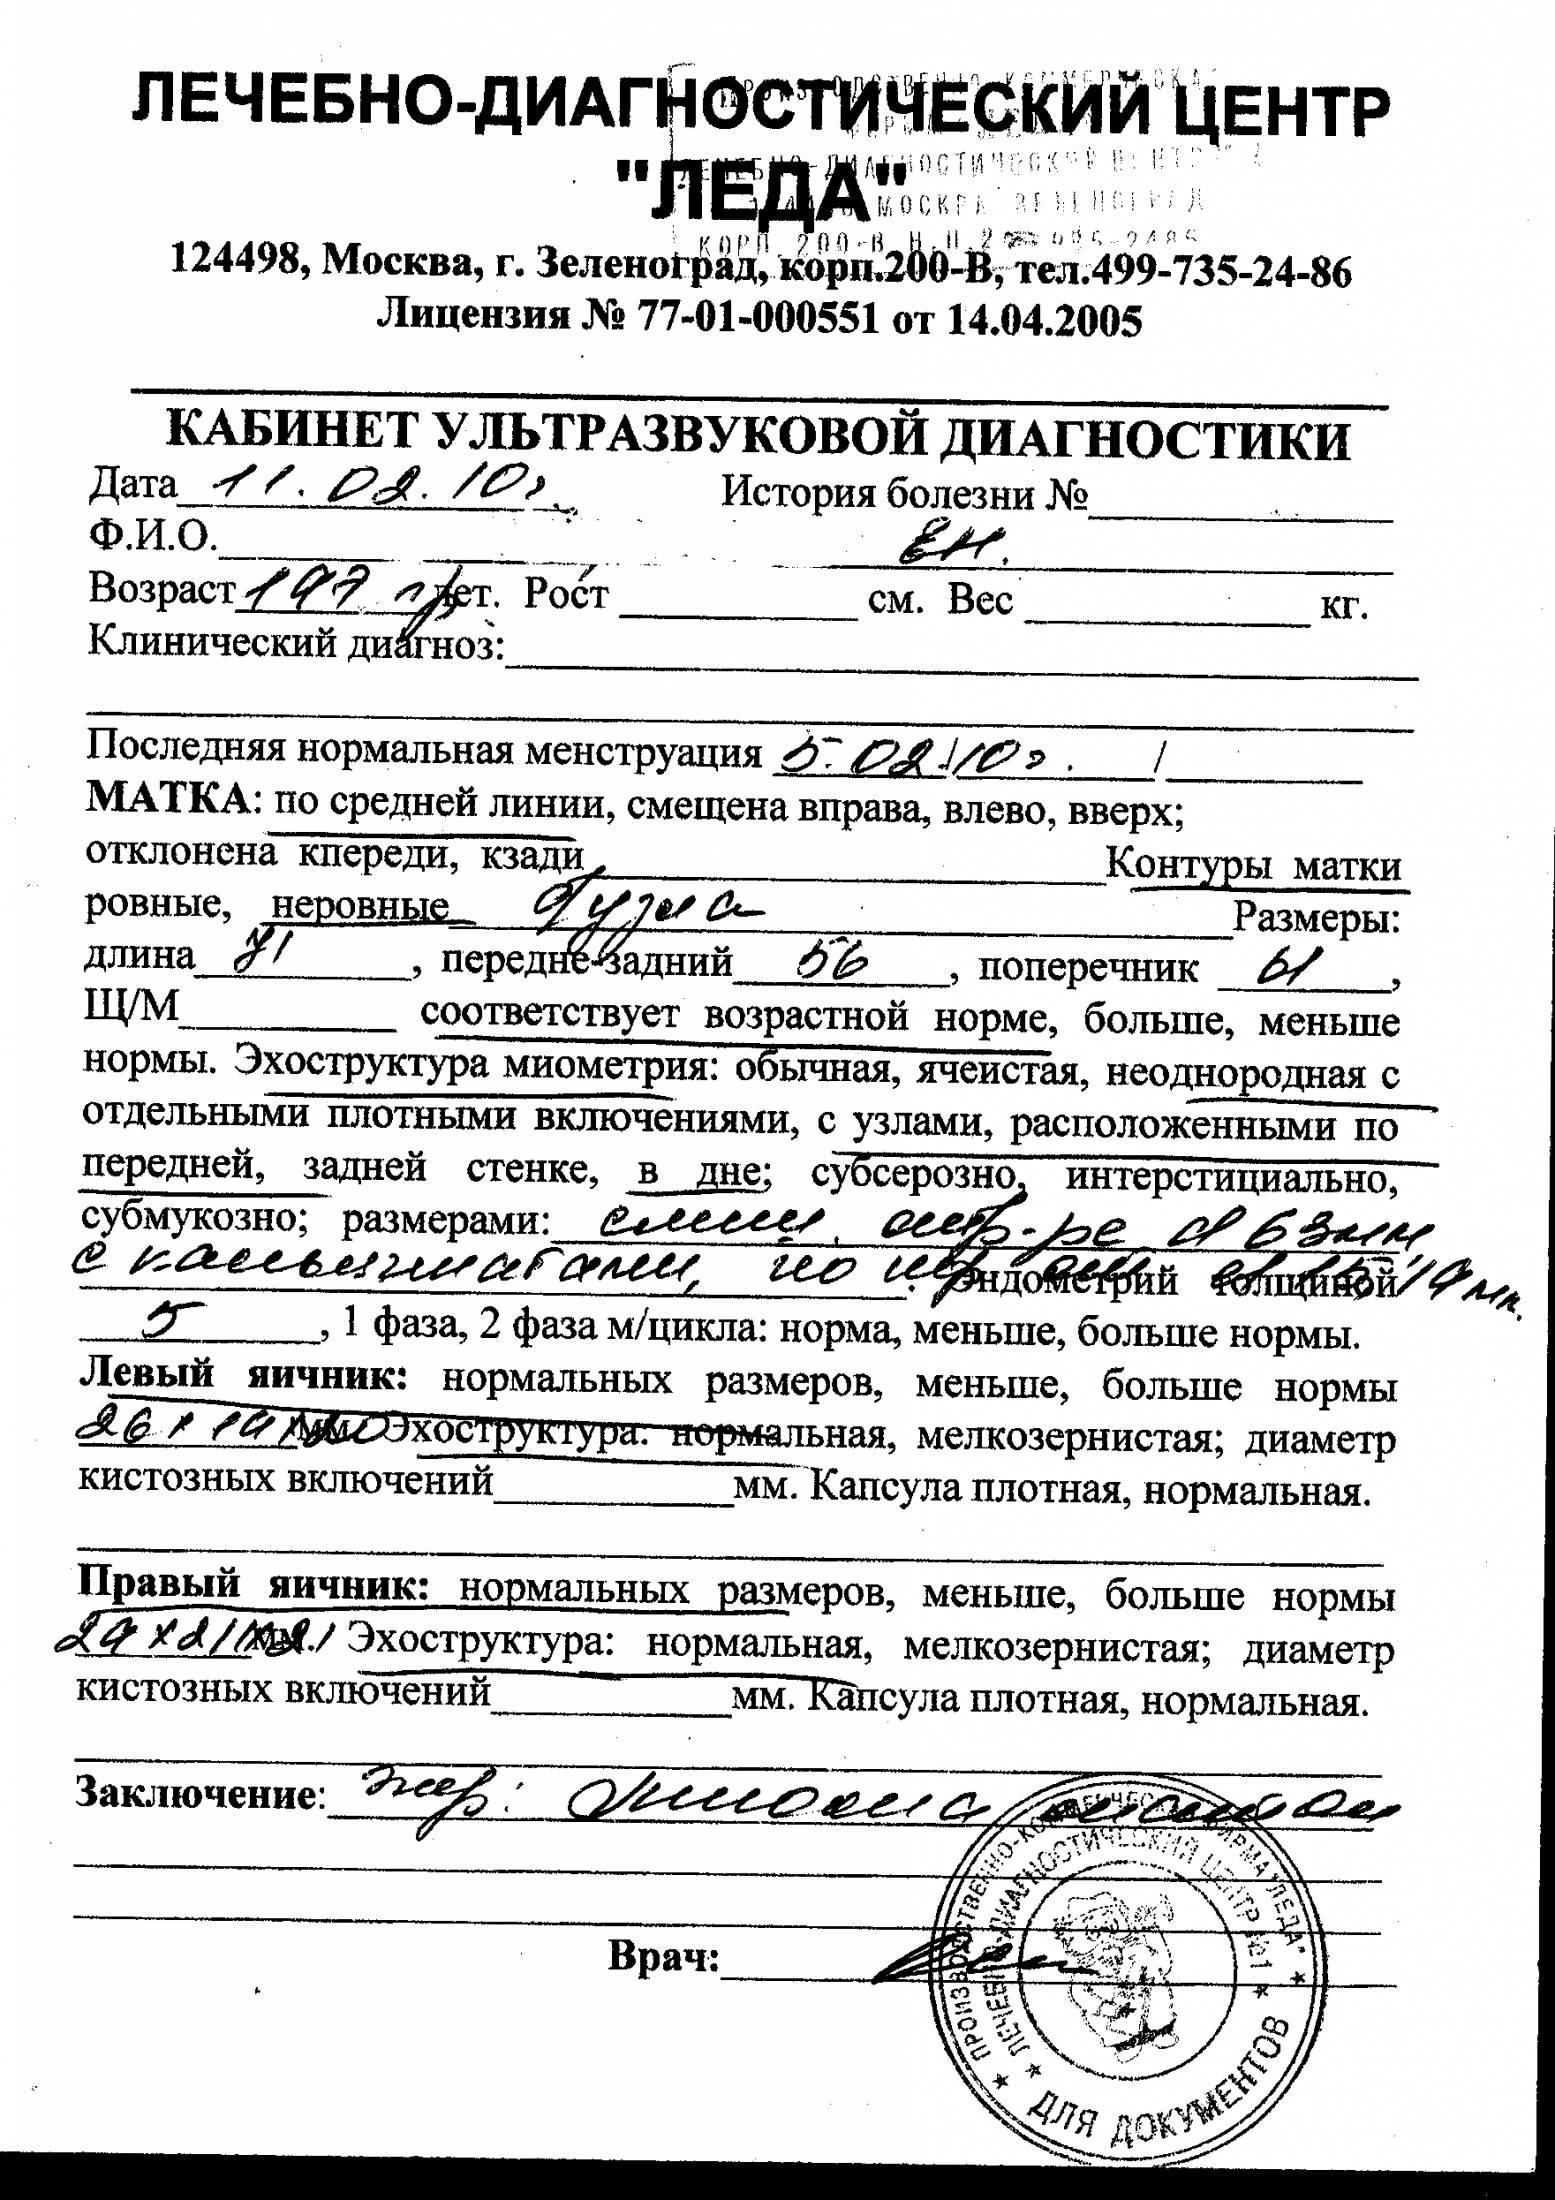 ЛЕЧЕБНО-ДИАГНОСТИЧЕСКИЙ ЦЕНТР
"ЛЕДА"
124498, Москва, г. Зеленоград, корп.200-В, тел.499-735-24-86
Лицензия № 77-01-000551 от 14.04.2005
КАБИНЕТ УЛЬТРАЗВУКОВОЙ ДИАГНОСТИКИ
Дата 11.02.10г История болезни №
Ф.И.О. Е.Н.
Возраст лет. Рост см. Вес кг.
Клинический диагноз:
Последняя нормальная менструация 5.02.10г.
МАТКА: по средней линии, смещена вправа, влево, вверх;
отклонена кпереди, кзади Контуры матки
ровные, неровные Размеры:
длина 71, передне-задний 56, поперечник 61,
Щ/М соответствует возрастной норме, больше, меньше
нормы. Эхоструктура миометрия: обычная, ячеистая, неоднородная с
отдельными плотными включениями, с узлами, расположенными по
передней, задней стенке, в дне; субсерозно, интерстициально,
субмукозно; размерами:
с кальцинатами, по Эндометрий толщиной
5, 1 фаза, 2 фаза м/цикла: норма, меньше, больше нормы.
Левый яичник: нормальных размеров, меньше, больше нормы
26 х 19 х 20 мм. Эхоструктура: нормальная, мелкозернистая; диаметр
кистозных включений мм. Капсула плотная, нормальная.
Правый яичник: нормальных размеров, меньше, больше нормы
29 х 21 х 21 мм. Эхоструктура: нормальная, мелкозернистая; диаметр
кистозных включений мм. Капсула плотная, нормальная.
Заключение: миома
Врач:
ПРОИЗВОДСТВЕННО-КОММЕРЧЕСКАЯ ФИРМА "ЛЕДА"
ЛЕЧЕБНО-ДИАГНОСТИЧЕСКИЙ ЦЕНТР №1
ДЛЯ ДОКУМЕНТОВ